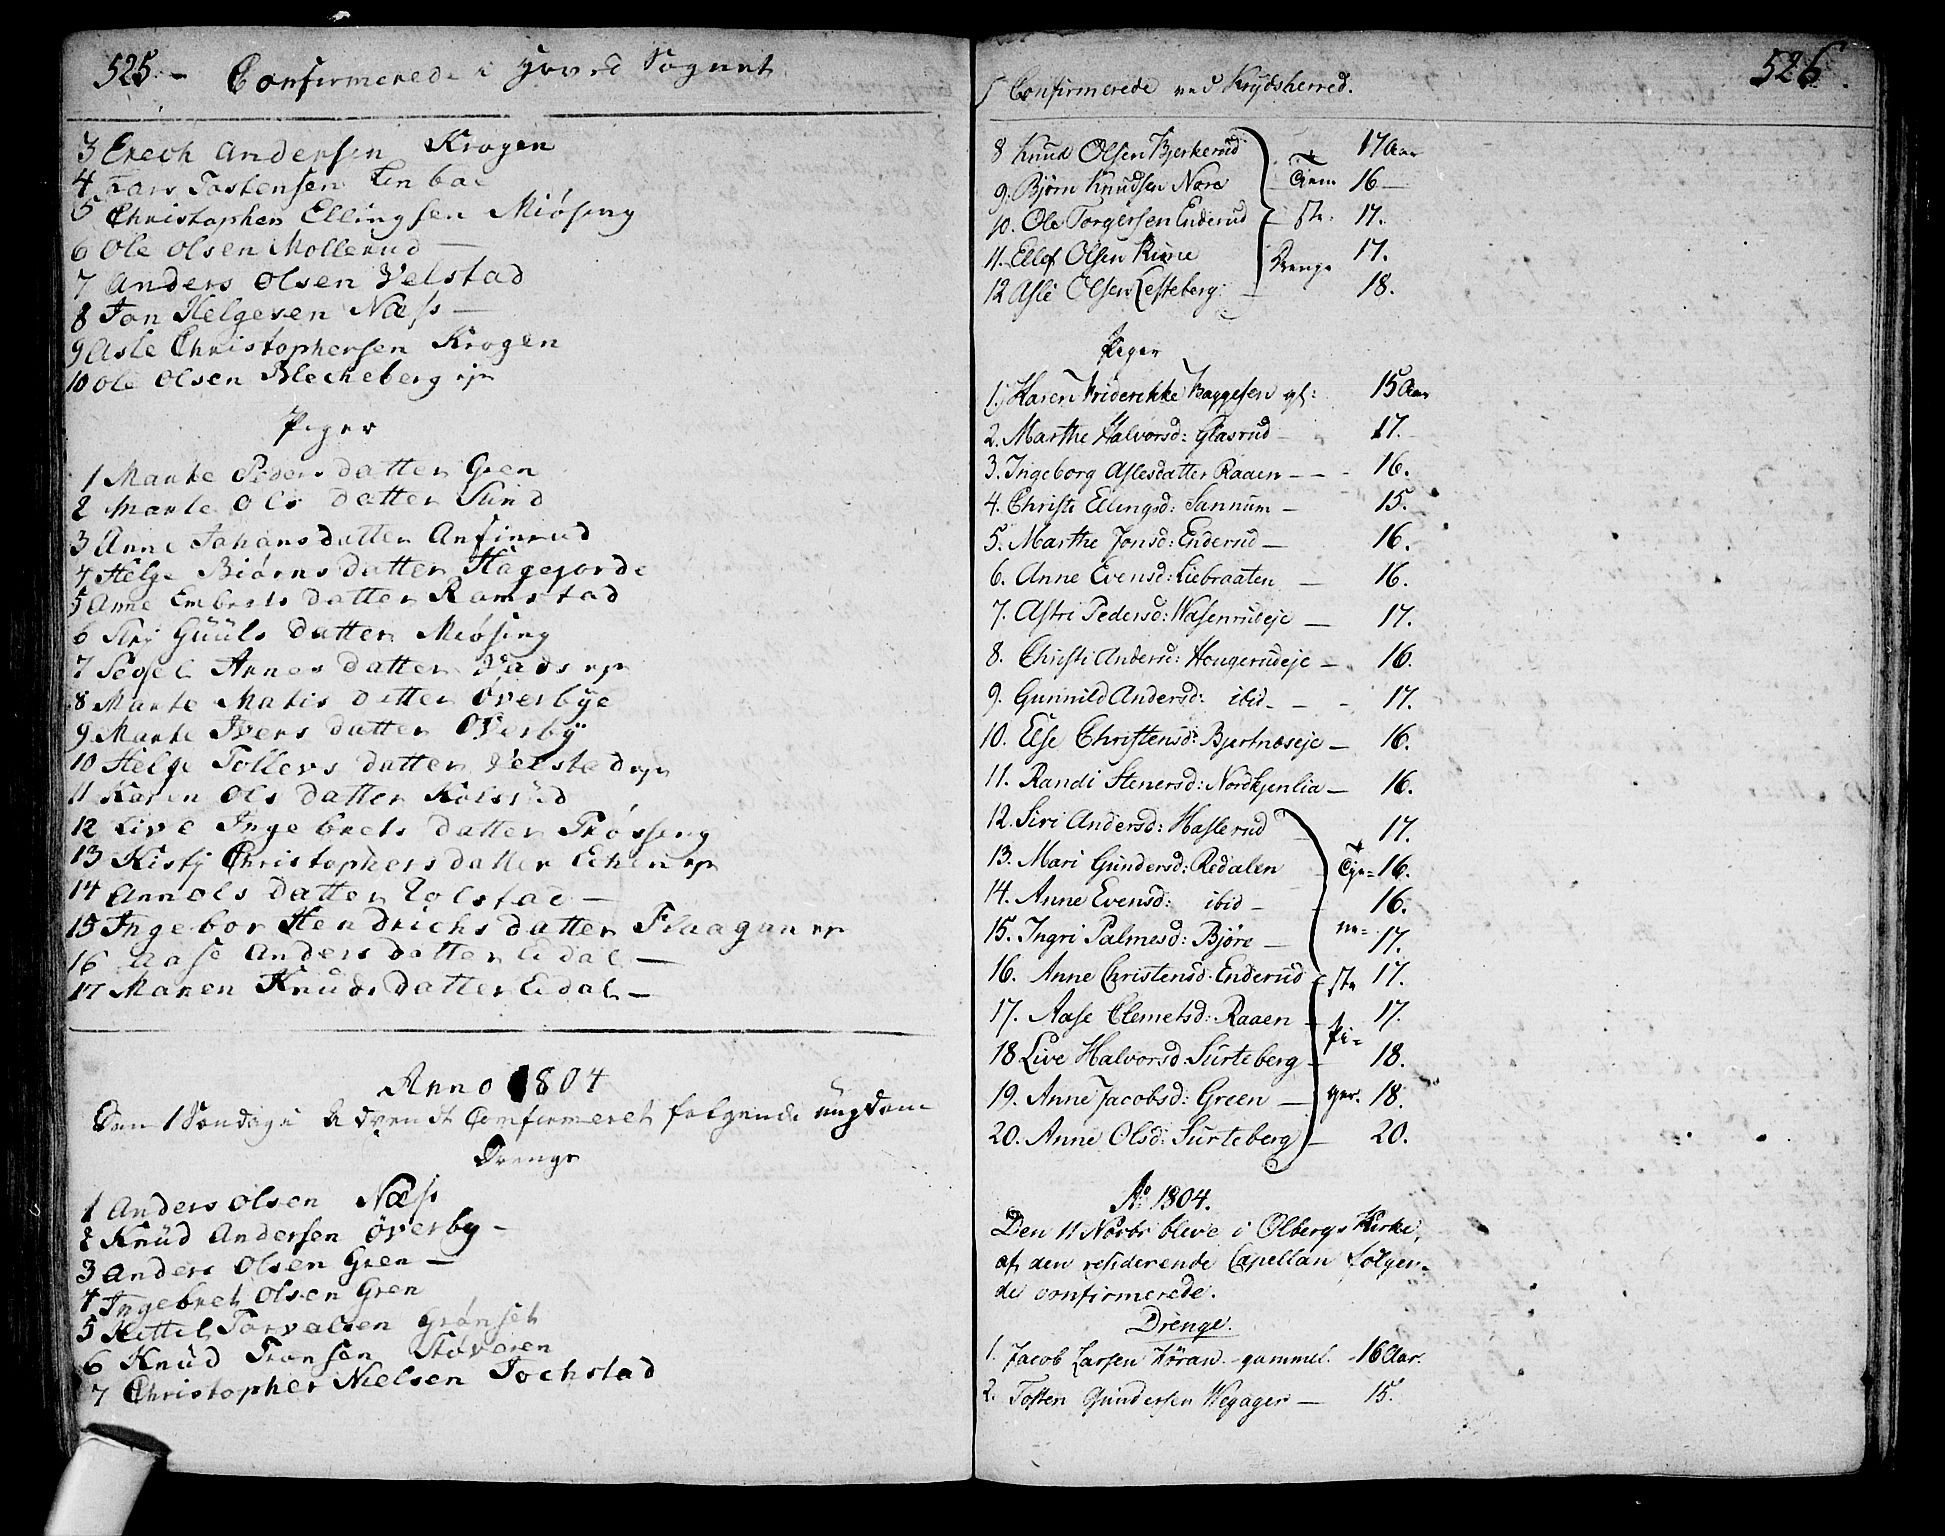 525.
Confirmerede i Hoved Sognet
3 Erech Andersen Krogen
4 Lars Tostensen
5 Christopher Ellingsen Miøsing
6 Ole Olsen Mollerud —
7 Anders Olsen Velstad
8 Jon Helgesen Næss —
9 Asle Christophersen Krogen
10 Ole Olsen Blecheberg eje
Piger
1 Marte Pedersdatter Gren
2 Marte Ols datter Sund
3 Anne Johans datter Anfinrud
4 Helge Biørns datter Hagejorde
5 Anne Emberts datter Ramstad
6 Guuls datter Miøsing
7 Arnes datter
8 Marte Matis datter Øverbye
9 Marte Ivers datter Øverby
10 Helge Tollevs datter Velstad eje
11 Karen Ols datter Kolsrud
12 Live Ingebrets datter Trøssing
13 Kisty Christophers datter
14 Ann Ols datter Tolstad —
15 Ingebor Hendrichs datter Flaagan er
16 Aase Anders datter Eidal —
17 Maren Knuds datter Eidal —
Anno 1804
Den 1 Søndag i Advendt Confirmeret følgende ungdom
Drenge
1 Anders Olsen Næss
2 Knud Andersen Øverby —
3 Anders Olsen Gren —
4 Ingebret Olsen Gren
5 Kittil Torvalsen Grønset
6 Knud Støveren
7 Christopher Nielsen Tochstad
526.
Confirmerede ved Krydsherred.
8 Knud Olsen Bjerkerud 17 Aar
9. Bjørn Knudsen Nore Tiene 16 —
10. Ole Torgersen Enderud — ste: 17.
11. Ellef Olsen Rime 17.
Drenge
12 Asle Olsen Lesteberg: — 18.
Piger
1. Karen Friderikke Baggesen gl: 15 Aar
2. Marthe Halvorsd: Glasrud — 17.
3. Ingeborg Aslesdatter Raaen — — 16.
4. Christi Elingsd: Sannum — 15.
5. Marthe Jonsd: Enderud — 16.
6. Anne Evensd: Liebraaten — 16.
7. Astri Pedersd: Wasenrudeje — 17.
8. Christi Andersd: Hougerudeje — 16.
9. Gunnild Andersd: ibid — — 17.
10. Else Christensd: Bjertnæseje — 16.
11. Randi Stenersd: Nordkjenlia — 16.
12. Siri Andersd: Haslerud 17.
13. Mari Gundersd: Redalen Tje= 16.
14. Anne Evensd: ibid — 16.
15. Ingri Palmesd: Bjøre — ne= 17.
16. Anne Christensd. Enderud ste 17.
17. Aase Clemetsd: Raaen — 17.
Pi=
18 Live Halvorsd. Surteberg — 18.
19. Anne Jacobsd: Green — ger. 18.
20. Anne Olsd: Surteberg — 20.
Ao 1804.
Den 11 Novbr bleve i Olbergs Kirke,
af den residerende Capellan følgen=
de confirmerede.
Drenge.
1. Jacob Larsen — gammel. — 16 Aar.
2. Tosten Gundersen Wegager — 15.